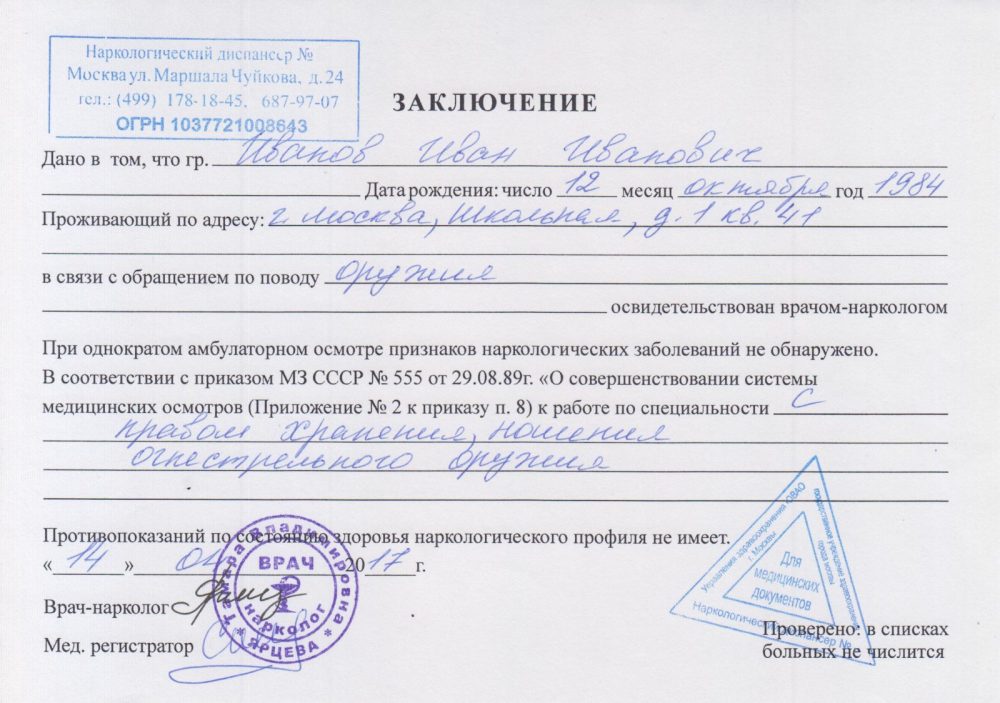 Наркологический диспансер №
Москва ул. Маршала Чуйкова, д. 24
тел.: (499) 178-18-45, 687-97-07
ОГРН 1037721008643
ЗАКЛЮЧЕНИЕ
Дано в том, что гр. Иванов Иван Иванович
Дата рождения: число 12 месяц октября год 1984
Проживающий по адресу: г. Москва, Школьная, д. 1 кв. 41
в связи с обращением по поводу оружия
освидетельствован врачом-наркологом
При однократом амбулаторном осмотре признаков наркологических заболеваний не обнаружено.
В соответствии с приказом МЗ СССР № 555 от 29.08.89г. «О совершенствовании системы
медицинских осмотров (Приложение № 2 к приказу п. 8) к работе по специальности с
правом хранения, ношения
огнестрельного оружия
Противопоказаний по состоянию здоровья наркологического профиля не имеет.
«14» 04 2017г.
Врач-нарколог
Мед. регистратор
Тамара Владимировна
ЯРЦЕВА
ВРАЧ
нарколог
Управления здравоохранения ЮВАО
г. Москвы
государственное учреждение здравоохранения
города москвы
Наркологический диспансер №
Для
медицинских
документов
Проверено: в списках
больных не числится